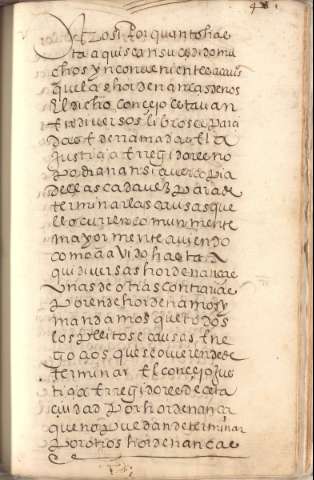 Otrosi por quanto has
ta aqui se an sucedido mu
chos ynconvenientes a causa
que las hordenanças de nos
El dicho concejo estavan
En diversos libros Repar
das E derramadas E la
justiçia E rregidores no
podian ansi aver copia
dellas cada vez para de
terminar las causas que
les ocurren comunmente
mayormente aviendo
como a avido hasta a
qui diversas hordenanças
unas de otras contrarias
Por ende hordenamos y
mandamos que todos
los pleitos e causas E ne
goçios que se ouieren de de
terminar El concejo jus
tiçia E rregidores de esta
ciudad por hordenanças
que no puedan determinar
por otras hordenanças